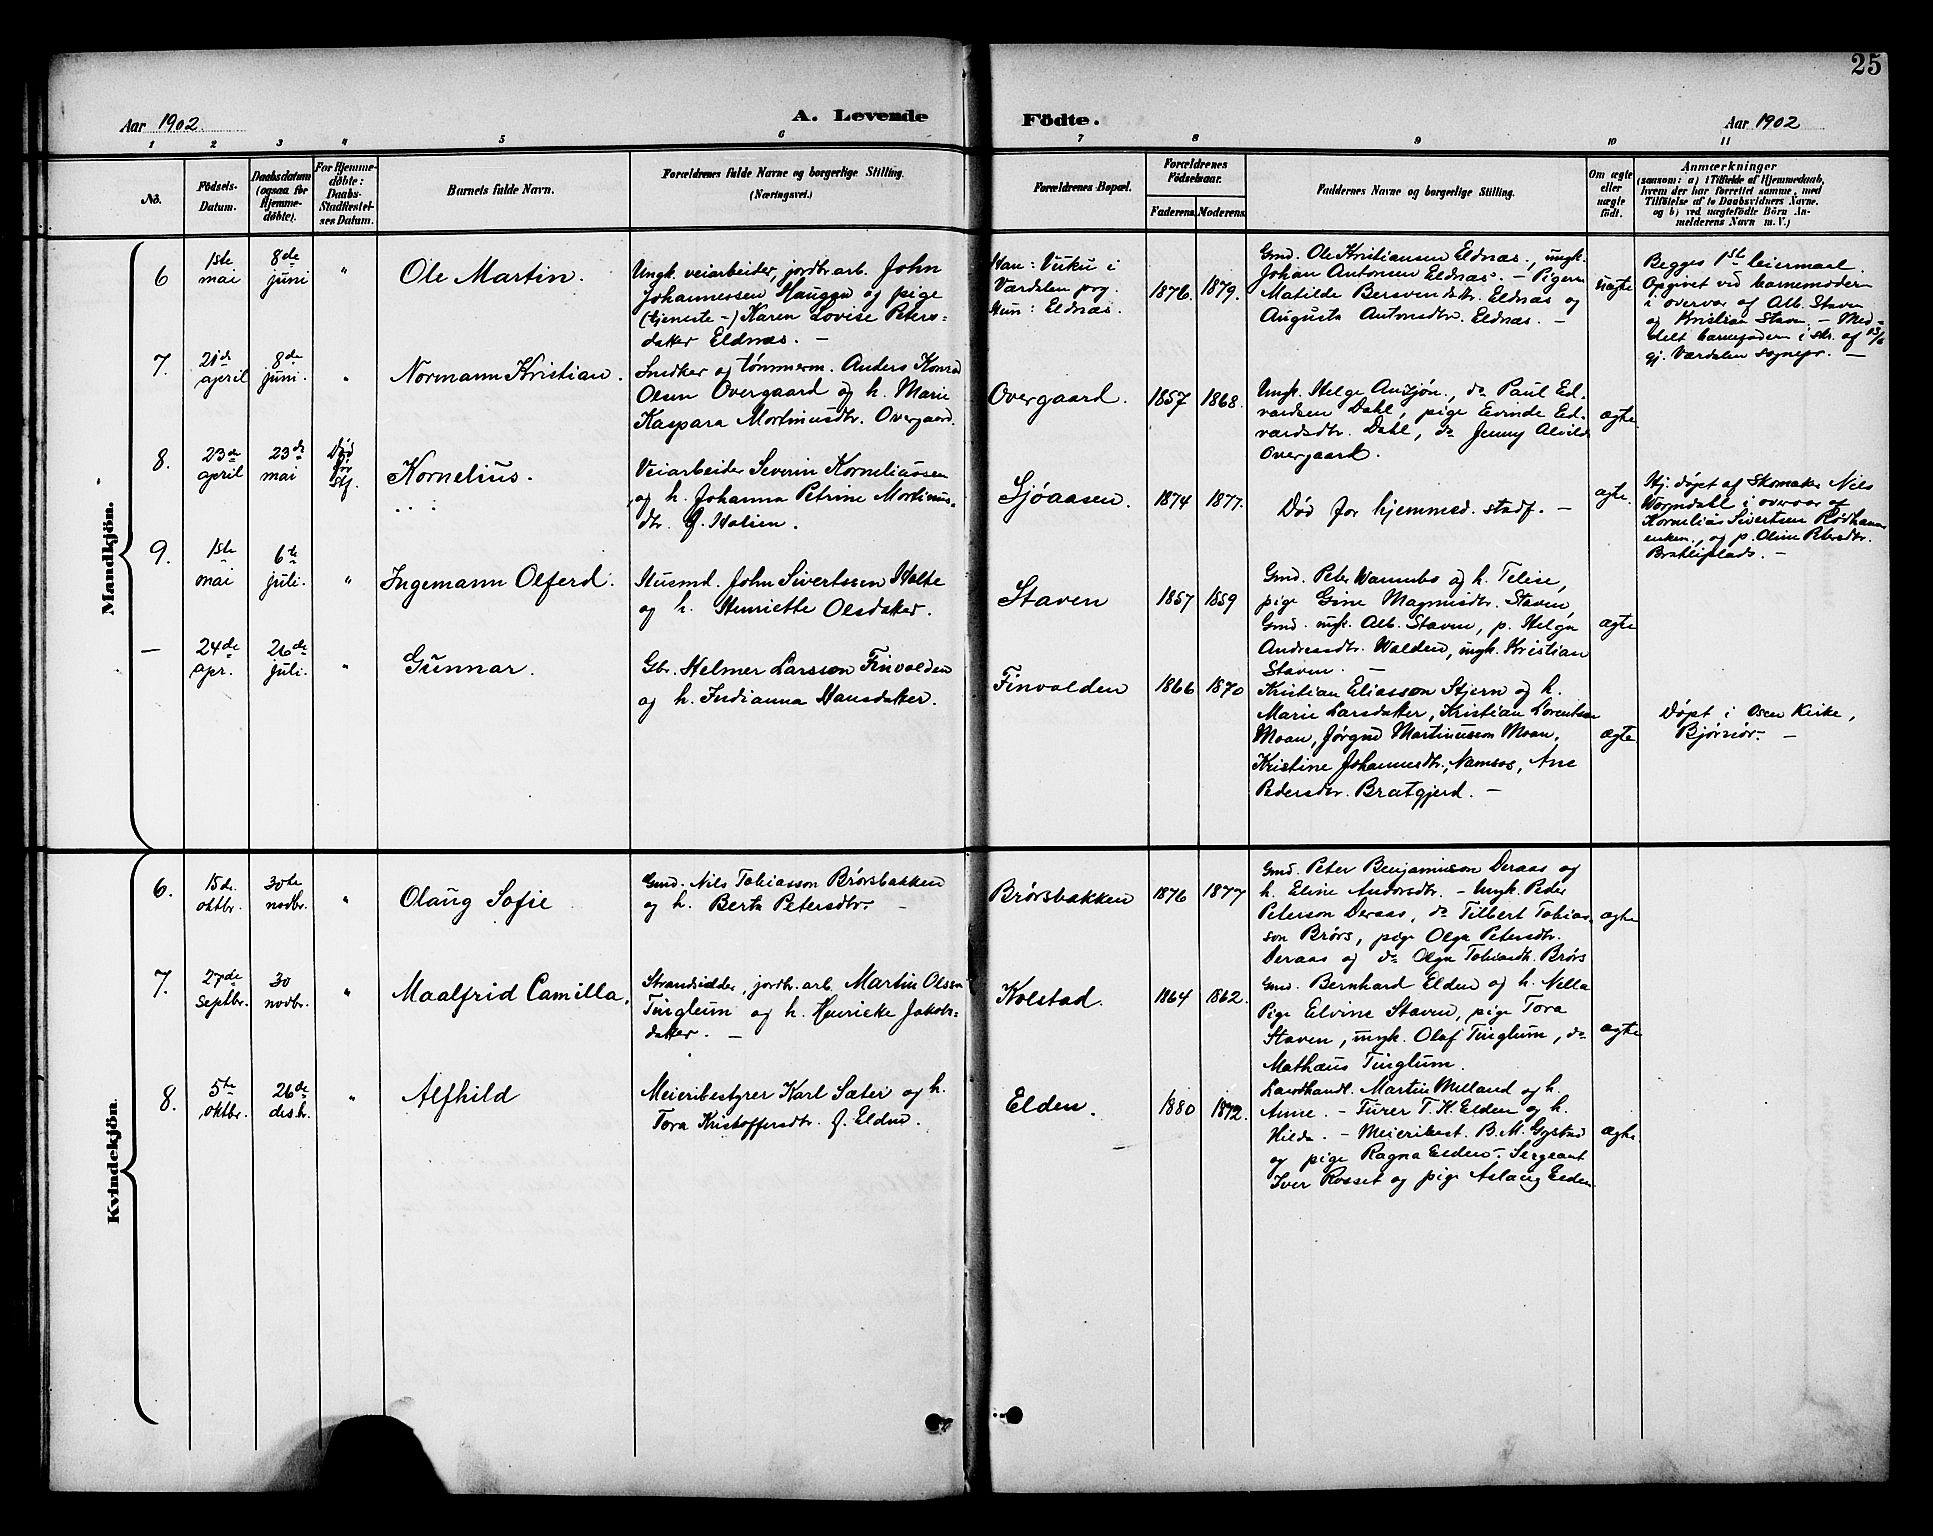 25
Aar 1902.
A. Levende
Födte.
Aar 1902
1 2 3 4 5 6 7 8 9 10 11
No.
Födsels-
Datum.
Daabsdatum
(ogsaa for
Hjemme-
döbte).
For Hjemme-
döbte:
Daabs-
Stadfæstel-
ses Datum.
Barnets fulde Navn.
Forældrenes fulde Navne og borgerlige Stilling.
(Næringsvei.)
Forældrenes Bopæl.
Forældrenes
Födselsaar.
Faderens.
Moderens.
Faddernes Navne og borgerlige Stilling.
Om ægte
eller
uægte
födt.
Anmærkninger
(saasom: a) i Tilfælde af Hjemmedaab,
hvem der har forrettet samme, med
Tilföielse af to Daabsvidners Navne.
og b) ved uægtefödte Börn An-
melderens Navn m. V.)
Mandkjön.
6
1ste
mai
8de
juni
"
Ole Martin.
Ungk. veiarbeider, jordbr. arb. John
Johannessen Haugen og pige
(tjeneste-) Karen Lovise Peters-
datter Eldnæs. –
Han: Vuku i
Værdalen prg.
Hun: Eldnæs.
1876.
1879.
Gmd. Ole Kristiansen Eldnæs., ungk.
Johan Antonsen Eldnæs. – Pigerne
Matilde Bersvendsdtr. Eldnæs og
Augusta Antonsdtr. Eldnæs. –
uægte
Begges 1ste leiermaal.
Opgivet ved barnemoderen
i overvær af Alb. Staven
og Kristian Staven. – Med-
delt barnefaderen i skr. af 13/6
gj. Værdalen sognepr. –
7.
21de
april
8de
juni.
"
Normann Kristian.
Snedker og tømmerm. Anders Konrad
Olsen Overgaard og h. Marie
Kaspara Mortinusdtr. Overgaard.
Overgaard.
1857
1868.
Ungk. Helge Ausjøn., do Paul Ed-
vardsen Dahl, pige Evinde Ed-
vardsdtr. Dahl, do Jenny Alvilde
Overgaard.
ægte
8.
23de
april
23de
mai
Død
før
stf.
Kornelius.
Veiarbeider Severin Korneliussen
og h. Johanna Petrine Mortinus-
dtr. f. Halsen.
Sjøaasen.
1874
1877.
Død før hjemmed. stadf. –
ægte.
Hj. døpt af Skomaker Nils
i overvær af
Kornelius Sivertsen
enken., og p. Oline Petersdtr.
Bratliplads. –
9.
1ste
mai
6te
juli.
"
Ingemann Olferd.
Husmd. John Sivertssen Holte
og h. Henriette Olsdatter.
Staven
1857
1859
Gmd. Peter Wannebo og h. Telise,
pige Gine Magnusdtr. Staven,
Gmd. ungk. Alb. Staven, p. Helga
Andreasdtr. Walden, ungk. Kristian
Staven. –
ægte
–
24de
apr.
26de
juli.
"
Gunnar.
Gbr. Helmer Larsson Finvolden
og h. Indianna Hansdatter.
Finvolden
1866
1870
Kristian Eliasson Stjern og h.
Marie Larsdatter, Kristian Lorentsen
Moan, Jørgine Martinusson Moan,
Kristine Johannesdtr., Namsos, Ane
Pedersdtr. Bratgjerd. –
ægte
Døpt i Osen Kirke,
Bjørnør. –
Kvindekjön
6.
15de
oktbr.
30te
novbr.
"
Olaug Sofie
Gmd. Nils Tobiasson Brørsbakken
og h. Berta Petersdtr. –
Brørsbakken
1876
1877
Gmd. Peter Benjaminson Deraas og
h. Eline Andorsdtr. – Ungk. Peder
Peterson Deraas, do Tilbert Tobias-
son Brørs, pige Olga Petersdtr.
Deraas og do Olga Tobiasdtr. Brørs
ægte
7.
27de
septbr.
30
novbr.
"
Maalfrid Camilla.
Strandsidder, jordbr. arb. Martin Olsen
Tinglum og h. Henrikke Jakobs-
datter. –
Kolstad.
1864
1862.
Gmd. Bernhard Elden og h. Nella
Pige Elvine Staven, pige Tora
Staven, ungk. Olaf Tinglum, do
Mathæus Tinglum.
ægte
8.
5te
oktbr.
26de
desb.
"
Alfhild
Meieribestyrer Karl Sæter og h.
Tora Kristoffersdtr. f. Elden.
Elden.
1880
1872.
Landhandl. Martin Melland og h.
Anne. – Furer T. K. Elden og h.
Hilda. – Meieribest. B. M. Gystad
og pige Ragna Elden. Sergeant
Iver Rosset og pige Aslaug Elden
ægte